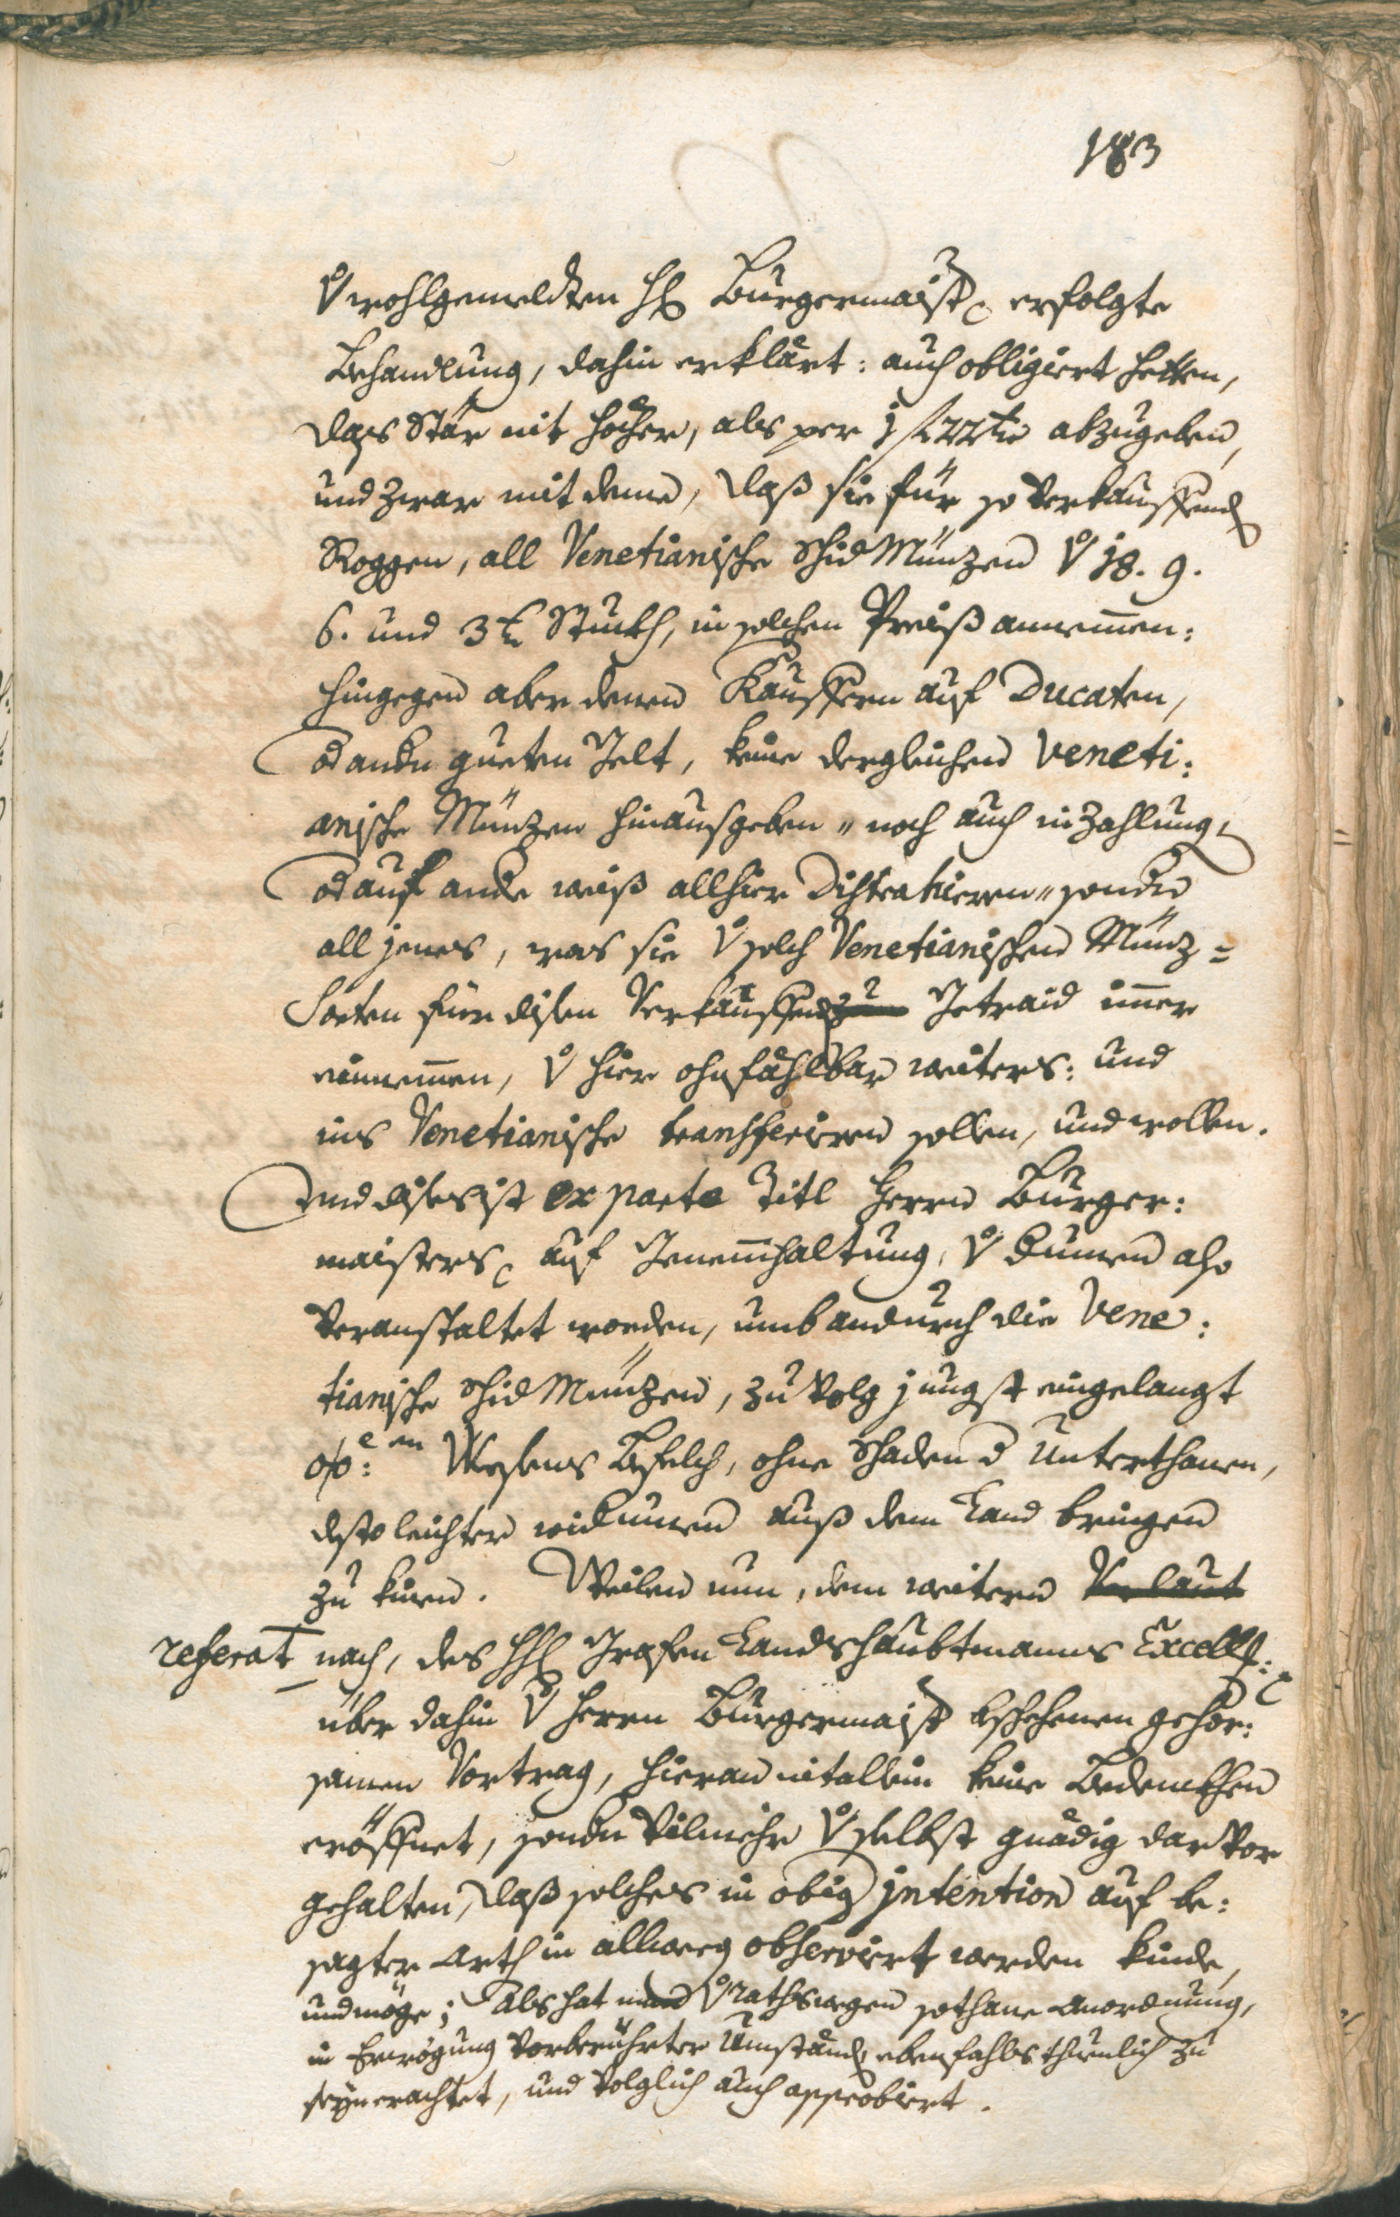 183
V wohlgemeldten H: Burgermaist: erfolgte
Behandlung, dahin erklärt: auch obligiert hetten,
das Stär nit höcher, als per 1 f 22 kr abzugeben,
und zwar mit deme, daß sie für so verkauffend
Roggen, all Venetianische Schid Münzen v 18. 9.
6. und 3 kr Stuckh, in solchen Preiß annemen:
hingegen aber denen Käuffern auf Ducaten,
od andn gueten Gelt, keine dergleichen Veneti:
anische Münzen hinausgeben " noch auch in Zahlung,
od auf ande weiß allhier distrahieren " sondn
all jenes, was sie v solch Venetianischen Münz=
Sorten für disen verkauffend Getraid imer
einnemen, v hier ohnfählbar weiters: und
ins Venetianische transferiren sollen, und wollen.
Und dises ist ex parte Titl Herrn Burger:
maisters auf Genemhaltung, v also
veranstaltet worden, umb andurch die Vene:
tianische Schid Münzen, zu Volg jüngst eingelangt
oö: en Wesens Befelch, ohne Schaden d Unterthanen,
desto leichter widumen auß dem Land bringen
zu kinen. Weilen nun, dem weitern Verlaut
referat nach, des HH: Grafen Landshaubtmanns Excell:
über dahin v Herrn Burgermaist bschehenen gehor:
samen Vortrag, hieran nit allein keine Bedenckhen
eröffnet, sondn vilmehr v selbst gnädig darvor
gehalten, daß solches in obig intention auf be:
sagter Arth in allweeg observirt werden kinde,
und möge; Als hat man v Rathswegen sothane Anordnung,
in Erwögung vorberührter Umständ, ebenfahls thuenlich zu
seyn erachtet, und volglich auch approbiert.